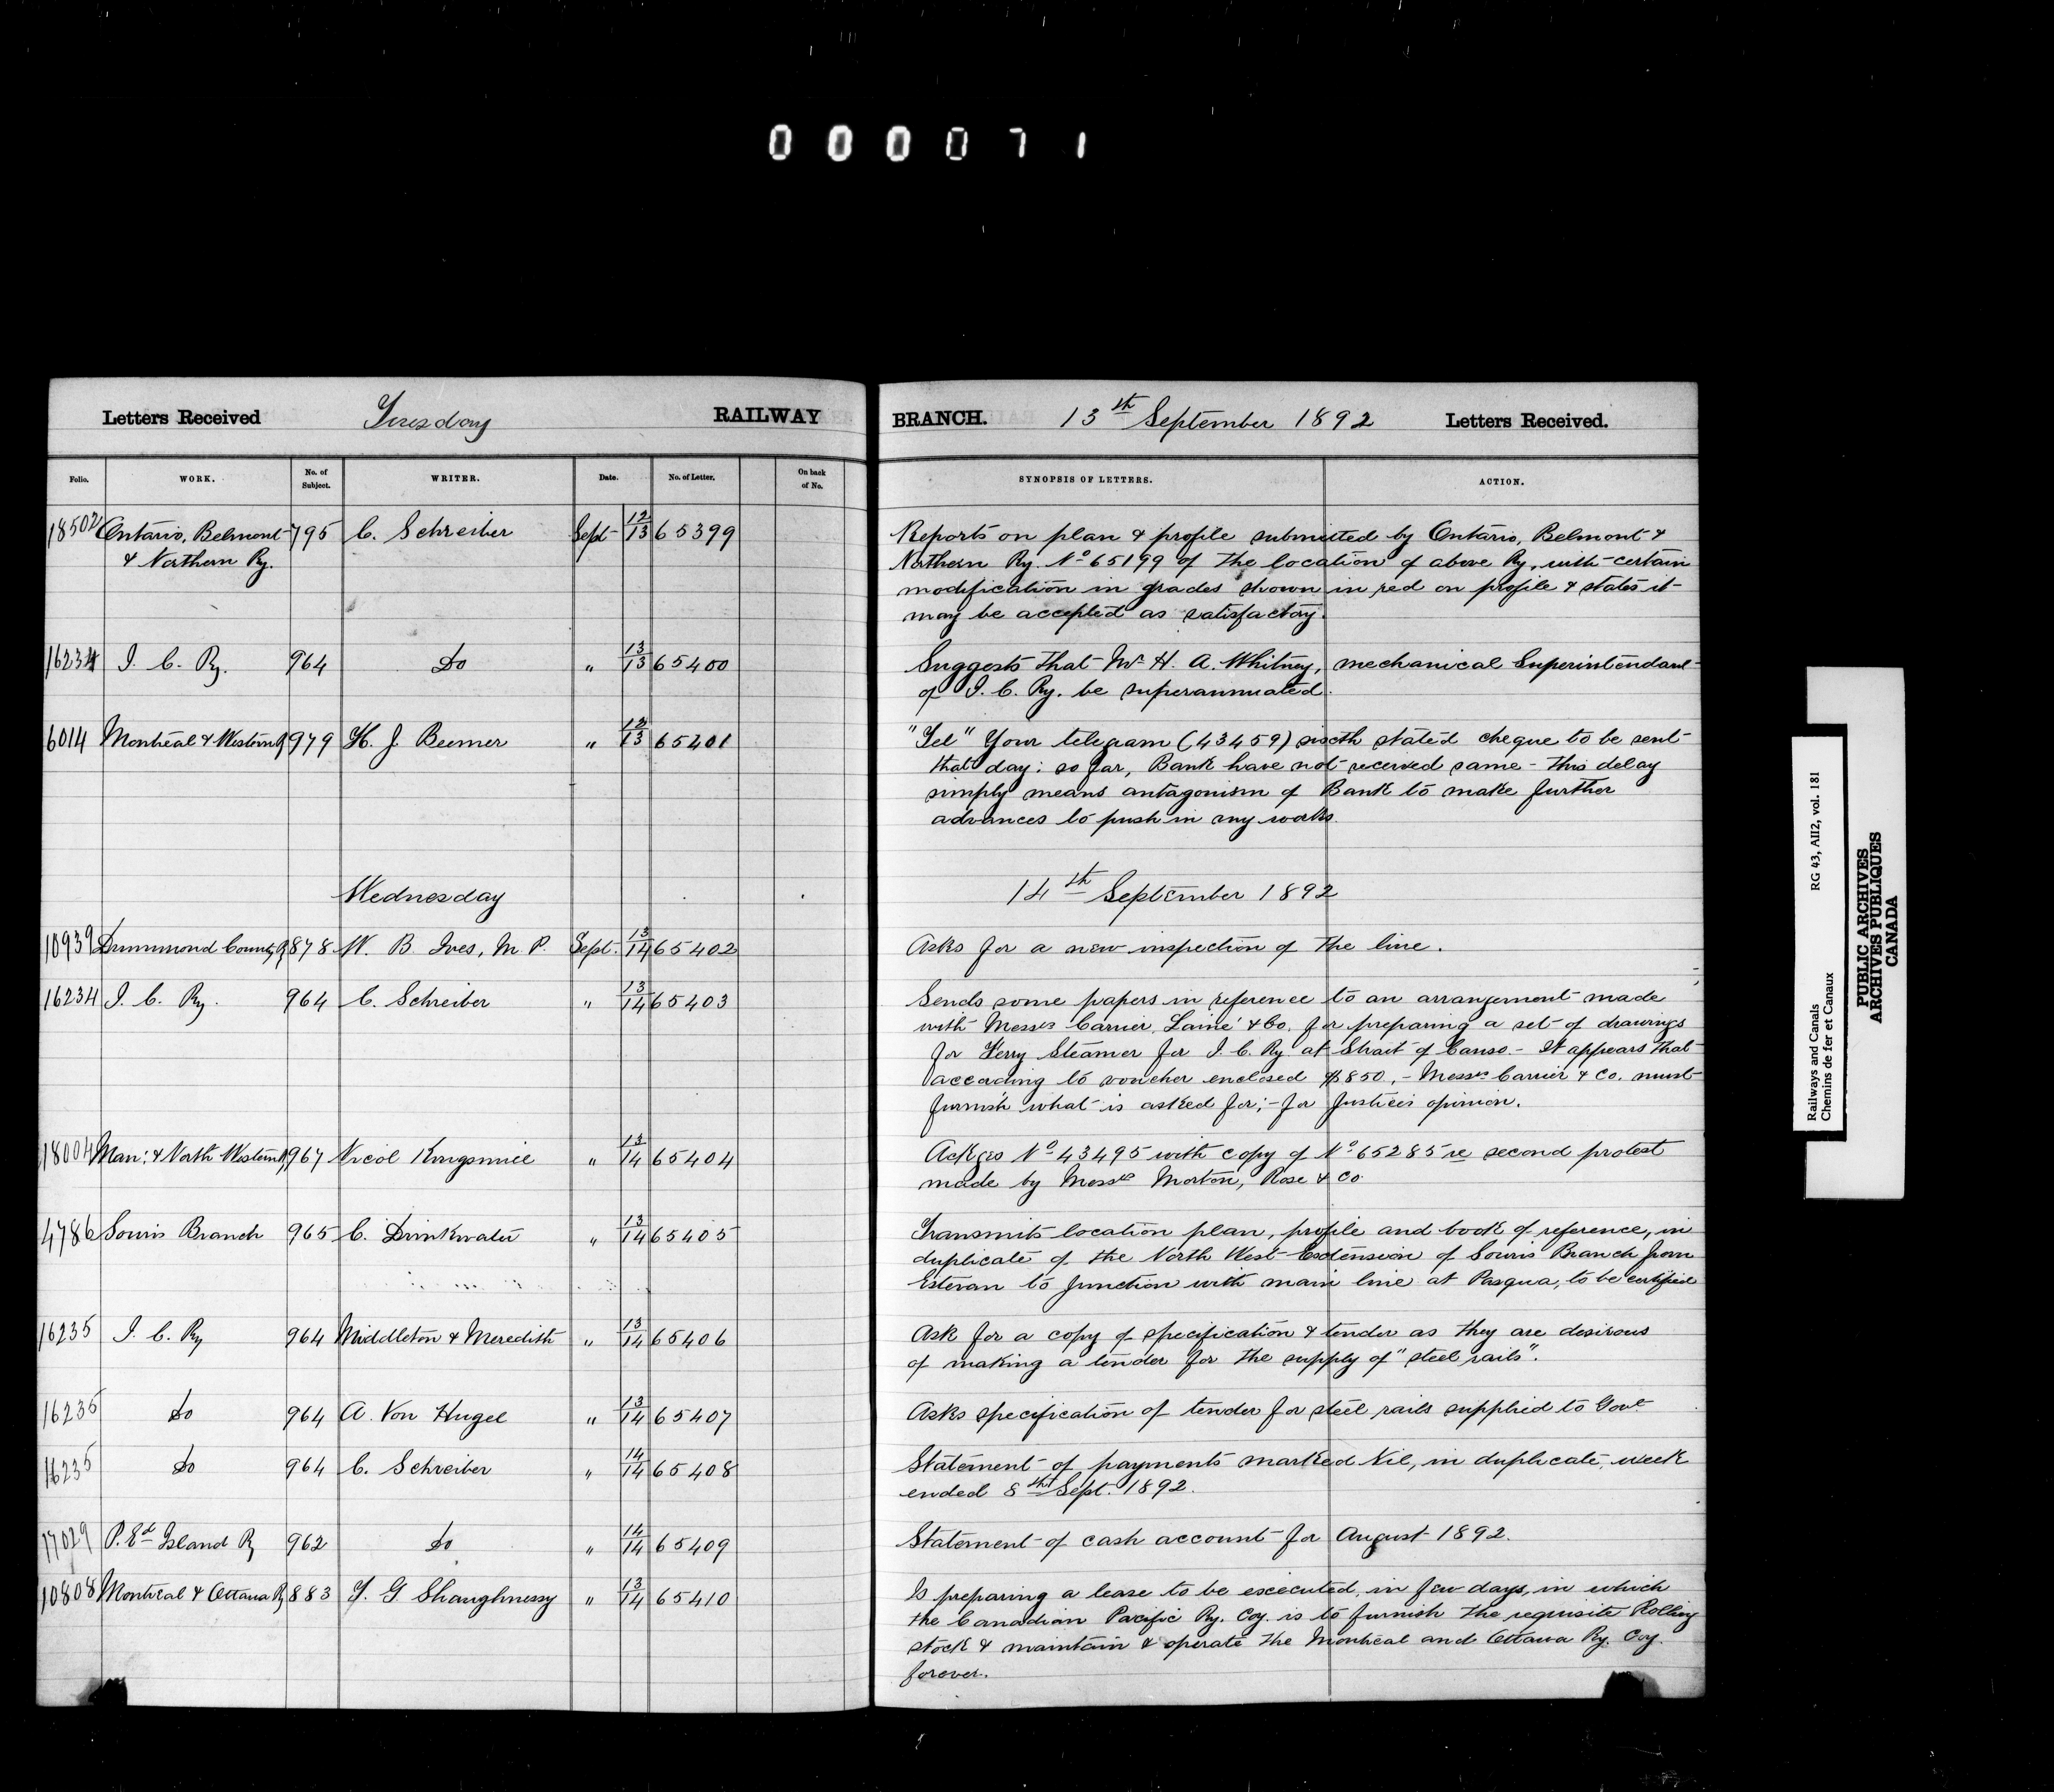 000071
Letters Received Tuesday RAILWAY BRANCH. 13th September 1892 Letters Received.
Folio. WORK. No. of Subject. WRITER. Date. No. of Letter. On back of No. SYNOPSIS OF LETTERS. ACTION.
18502 Ontario, Belmont 795 C. Schreiber Sept 12/13 65399 Reports on plan & profile submitted by Ontario, Belmont &
& Northern Ry. Northern Ry. No 65199 of the location of above Ry, with certain
modification in grades shown in red on profile & states it
may be accepted as satisfactory.
16234 I. C. Ry. 964 Do " 13/13 65400 Suggests that Mr H. A. Whitney, mechanical Superintendant
of I. C. Ry. be superannuated.
6014 Montreal & Western Ry 979 H. J. Beemer " 12/13 65401 "Tel" Your telegram (43459) sixth stated cheque to be sent
that day: so far, Bank have not received same - this delay
simply means antagonism of Bank to make further
advances to push in my works.
Wednesday 14th September 1892
10939 Drummond County Ry 878 W. B. Ives, M. P. Sept. 13/14 65402 Asks for a new inspection of the line.
16234 I. C. Ry. 964 C. Schreiber " 13/14 65403 Sends some papers in reference to an arrangement made
with Messrs Carrier, Lainé & Co. for preparing a set of drawings
for Ferry Steamer for I. C. Ry at Strait of Canso. - It appears that
according to voucher enclosed $850, - Messrs Carrier & Co. must
furnish what is asked for; - for Justice's opinion.
18004 Man: & North Western Ry 967 Nicol Kingsmill " 13/14 65404 Ackges No 43495 with copy of No 65285 re second protest
made by Messrs Morton, Rose & Co.
4786 Souris Branch 965 C. Drinkwater " 13/14 65405 Transmits location plan, profile and book of reference, in
duplicate of the North West Extension of Souris Branch from
Estevan to junction with main line at Pasqua, to be certified
16235 I. C. Ry 964 Middleton & Meredith " 13/14 65406 Ask for a copy of specification & tender as they are desirous
of making a tender for the supply of "steel rails".
16235 Do 964 A. Von Hugel " 13/14 65407 Asks specification of tender for steel rails supplied to Govt
16235 Do 964 C. Schreiber " 14/14 65408 Statement of payments marked Nil, in duplicate, week
ended 8th Sept. 1892.
17029 P. Ed Island Ry 962 Do " 14/14 65409 Statement of cash account for August 1892.
10808 Montreal & Ottawa Ry 883 T. G Shaughnessy " 13/14 65410 Is preparing a lease to be executed, in few days, in which
the Canadian Pacific Ry. Coy. is to furnish the requisite Rolling
stock & maintain & operate the Montreal and Ottawa Ry. Coy.
forever.
Railways and Canals RG 43, AII2, vol. 181
Chemins de fer et Canaux
PUBLIC ARCHIVES
ARCHIVES PUBLIQUES
CANADA